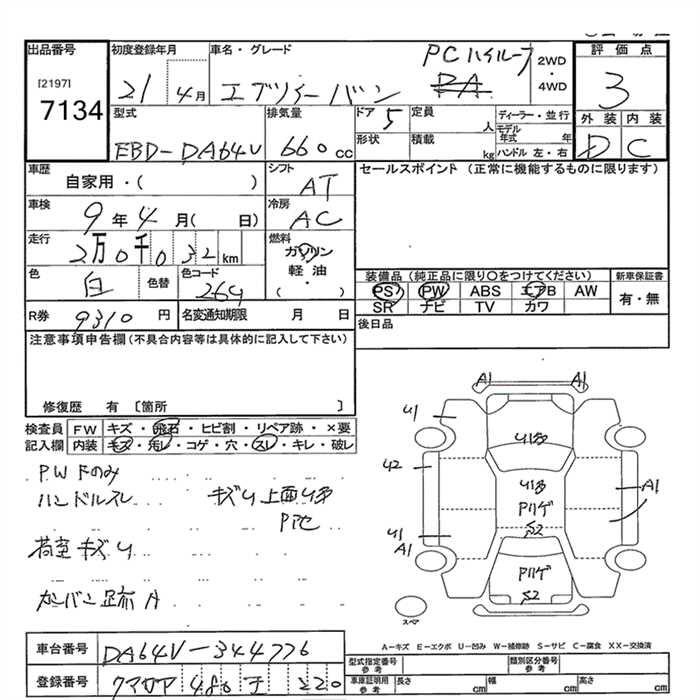 出品番号 初度登録年月 車名・グレード PCハイルーフ 2WD・4WD 評価点
[2197] 7134 21 4月 エブリイーバン PA 3
型式 排気量 ドア 定員 ディーラー・並行 外装 内装
EBD-DA64V 660cc 5 人 モデル年式 年 D C
形状 積載 kg ハンドル 左・右
車歴 シフト セールスポイント (正常に機能するものに限ります)
自家用・( ) AT
車検 冷房
9年4月( 日) AC
走行 燃料
2万0千032km ガソリン
軽油・
( )
色 色替 色コード 装備品(純正品に限り○をつけてください) 新車保証書
白 26U PS PW ABS エアB AW 有・無
SR ナビ TV カワ
R券 9310円 名変通知期限 月 日 後日品
注意事項申告欄(不具合内容等は具体的に記入して下さい)
修復歴 有 〔箇所 〕
検査員 FW キズ・飛石・ヒビ割・リペア跡・×要
記入欄 内装 キズ・汚レ・コゲ・穴・スレ・キレ・破レ
PWFのみ
ハンドルスレ キズU上面U多
荷室キズU
カンバン跡A
A1 A1
U1
U多
U2 U多
A1
Pハゲ
S2
U1
A1
Pハゲ
S2
スペア
A-キズ E-エクボ U-凹み W-補修跡 S-サビ C-腐食 XX-交換済
車台番号 DA64V-344776 型式指定番号 参考 類別区分番号 参考
登録番号 クマガヤ 480 チ 220 車庫証明用 参考 長さ cm 幅 cm 高さ cm